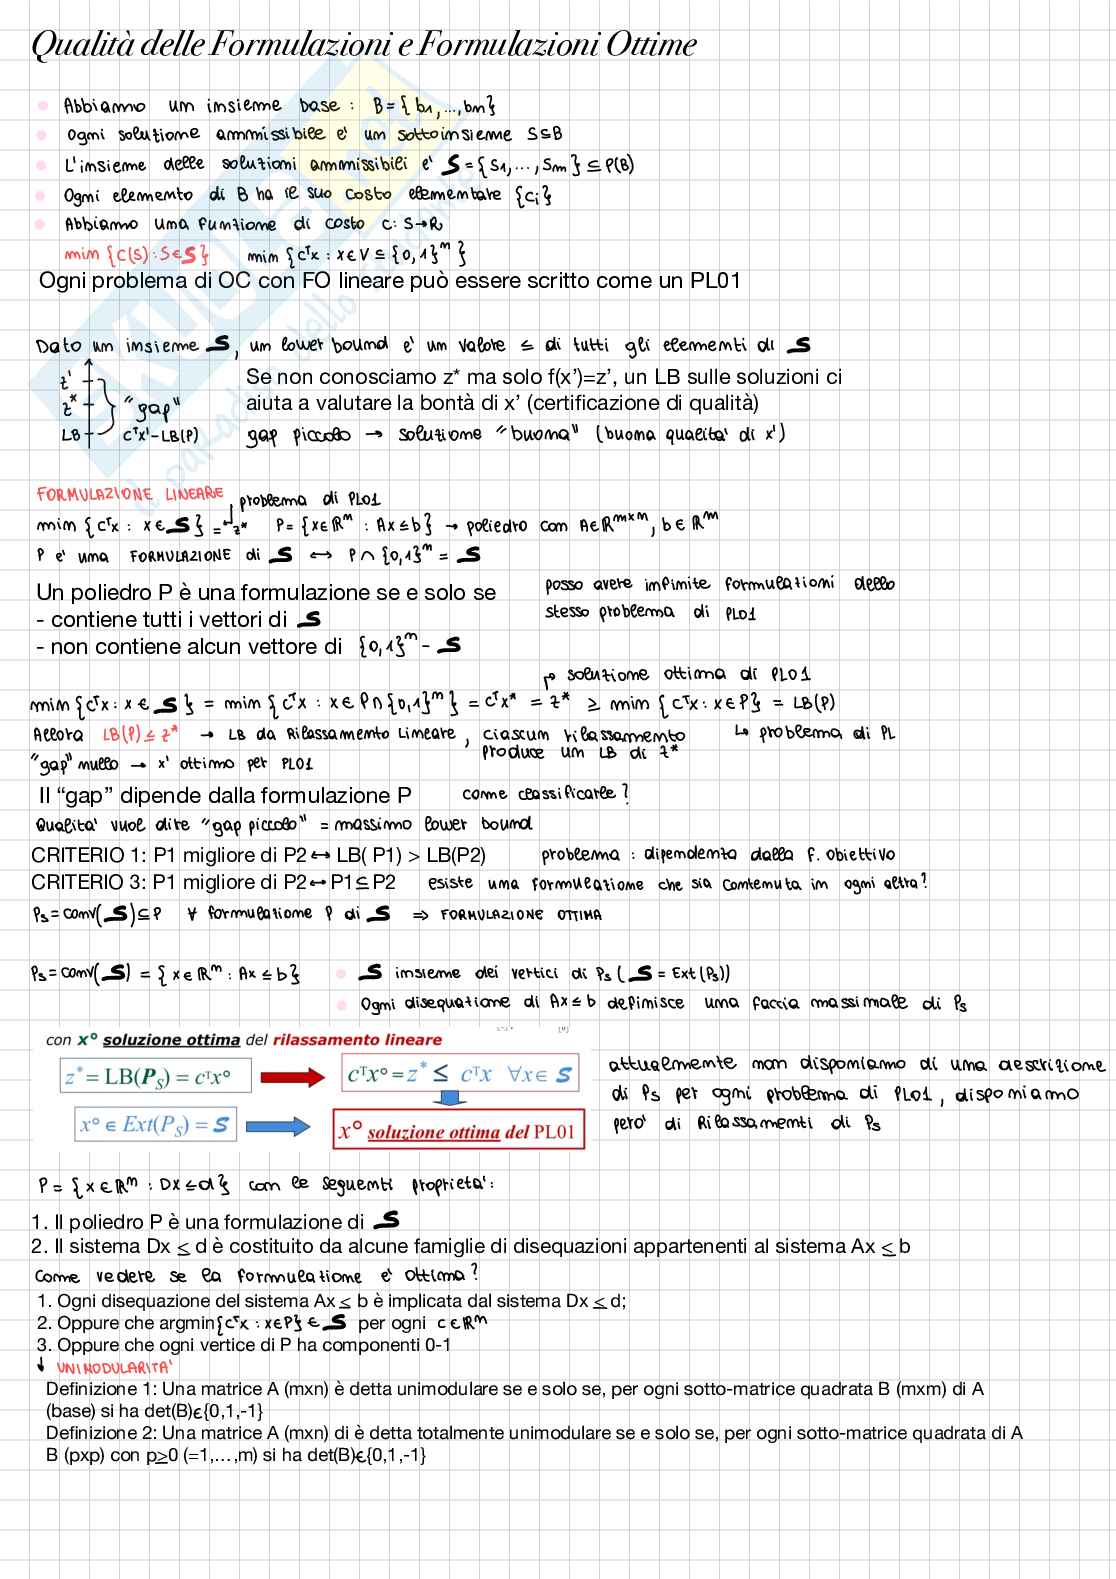 Qualità delle Formulazioni e Formulazioni Ottime
Abbiamo un insieme base : B = { b1,...,bn}
Ogni soluzione ammissibile e' un sottoinsieme S⊆B
L'insieme delle soluzioni ammissibili e' S = {S1,...,Sm} ⊆ P(B)
Ogni elemento di B ha il suo costo elementare {ci}
Abbiamo una funzione di costo c: S→R
min {c(S) : S∈S} min {cᵀx : x∈V ⊆ {0,1}ⁿ }
Ogni problema di OC con FO lineare può essere scritto come un PL01
Dato un insieme S, un lower bound e' un valore ≤ di tutti gli elementi di S
z'
z*
LB
"gap"
cᵀx'-LB(P)
Se non conosciamo z* ma solo f(x')=z', un LB sulle soluzioni ci
aiuta a valutare la bontà di x' (certificazione di qualità)
gap piccolo → soluzione "buona" (buona qualita' di x')
FORMULAZIONE LINEARE
problema di PL01
min {cᵀx : x∈S} = z* P= {x∈ℝⁿ : Ax≤b} → poliedro con A∈ℝᵐˣⁿ, b∈ℝᵐ
P e' una FORMULAZIONE di S ↔ P∩{0,1}ⁿ = S
Un poliedro P è una formulazione se e solo se
- contiene tutti i vettori di S
- non contiene alcun vettore di {0,1}ⁿ - S
posso avere infinite formulazioni dello
stesso problema di PL01
soluzione ottima di PL01
min{cᵀx : x∈S} = min {cᵀx : x∈P∩{0,1}ⁿ} = cᵀx* = z* ≥ min {cᵀx : x∈P} = LB(P)
Allora LB(P) ≤ z* → LB da Rilassamento Lineare, ciascun rilassamento
produce un LB di z*
↳ problema di PL
"gap" nullo → x' ottimo per PL01
Il “gap” dipende dalla formulazione P come classificarle?
Qualita' vuol dire "gap piccolo" = massimo lower bound
CRITERIO 1: P1 migliore di P2↔ LB( P1) > LB(P2) problema : dipendenza dalla f. obiettivo
CRITERIO 3: P1 migliore di P2↔ P1⊆P2 esiste una formulazione che sia contenuta in ogni altra?
Ps = conv(S)⊆P ∀ formulazione P di S ⇒ FORMULAZIONE OTTIMA
Ps = conv(S) = { x∈ℝⁿ : Ax ≤ b} S insieme dei vertici di Ps ( S = Ext(Ps))
Ogni disequazione di Ax≤b definisce una faccia massimale di Ps
con x° soluzione ottima del rilassamento lineare
z* = LB(PS) = cᵀx°
cᵀx° = z* ≤ cᵀx ∀x∈ S
x° ∈ Ext(PS) = S
x° soluzione ottima del PL01
attualmente non disponiamo di una descrizione
di Ps per ogni problema di PL01, disponiamo
pero' di Rilassamenti di Ps
P = {x∈ℝⁿ : Dx≤d} con le seguenti proprieta':
1. Il poliedro P è una formulazione di S
2. Il sistema Dx ≤ d è costituito da alcune famiglie di disequazioni appartenenti al sistema Ax ≤ b
Come vedere se la formulazione e' ottima?
1. Ogni disequazione del sistema Ax ≤ b è implicata dal sistema Dx ≤ d;
2. Oppure che argmin{cᵀx : x∈P} ∈ S per ogni c∈ℝⁿ
3. Oppure che ogni vertice di P ha componenti 0-1
↓ UNIMODULARITA'
Definizione 1: Una matrice A (mxn) è detta unimodulare se e solo se, per ogni sotto-matrice quadrata B (mxm) di A
(base) si ha det(B)ϵ{0,1,-1}
Definizione 2: Una matrice A (mxn) di è detta totalmente unimodulare se e solo se, per ogni sotto-matrice quadrata di A
B (pxp) con p≥0 (=1,…,m) si ha det(B)ϵ{0,1,-1}